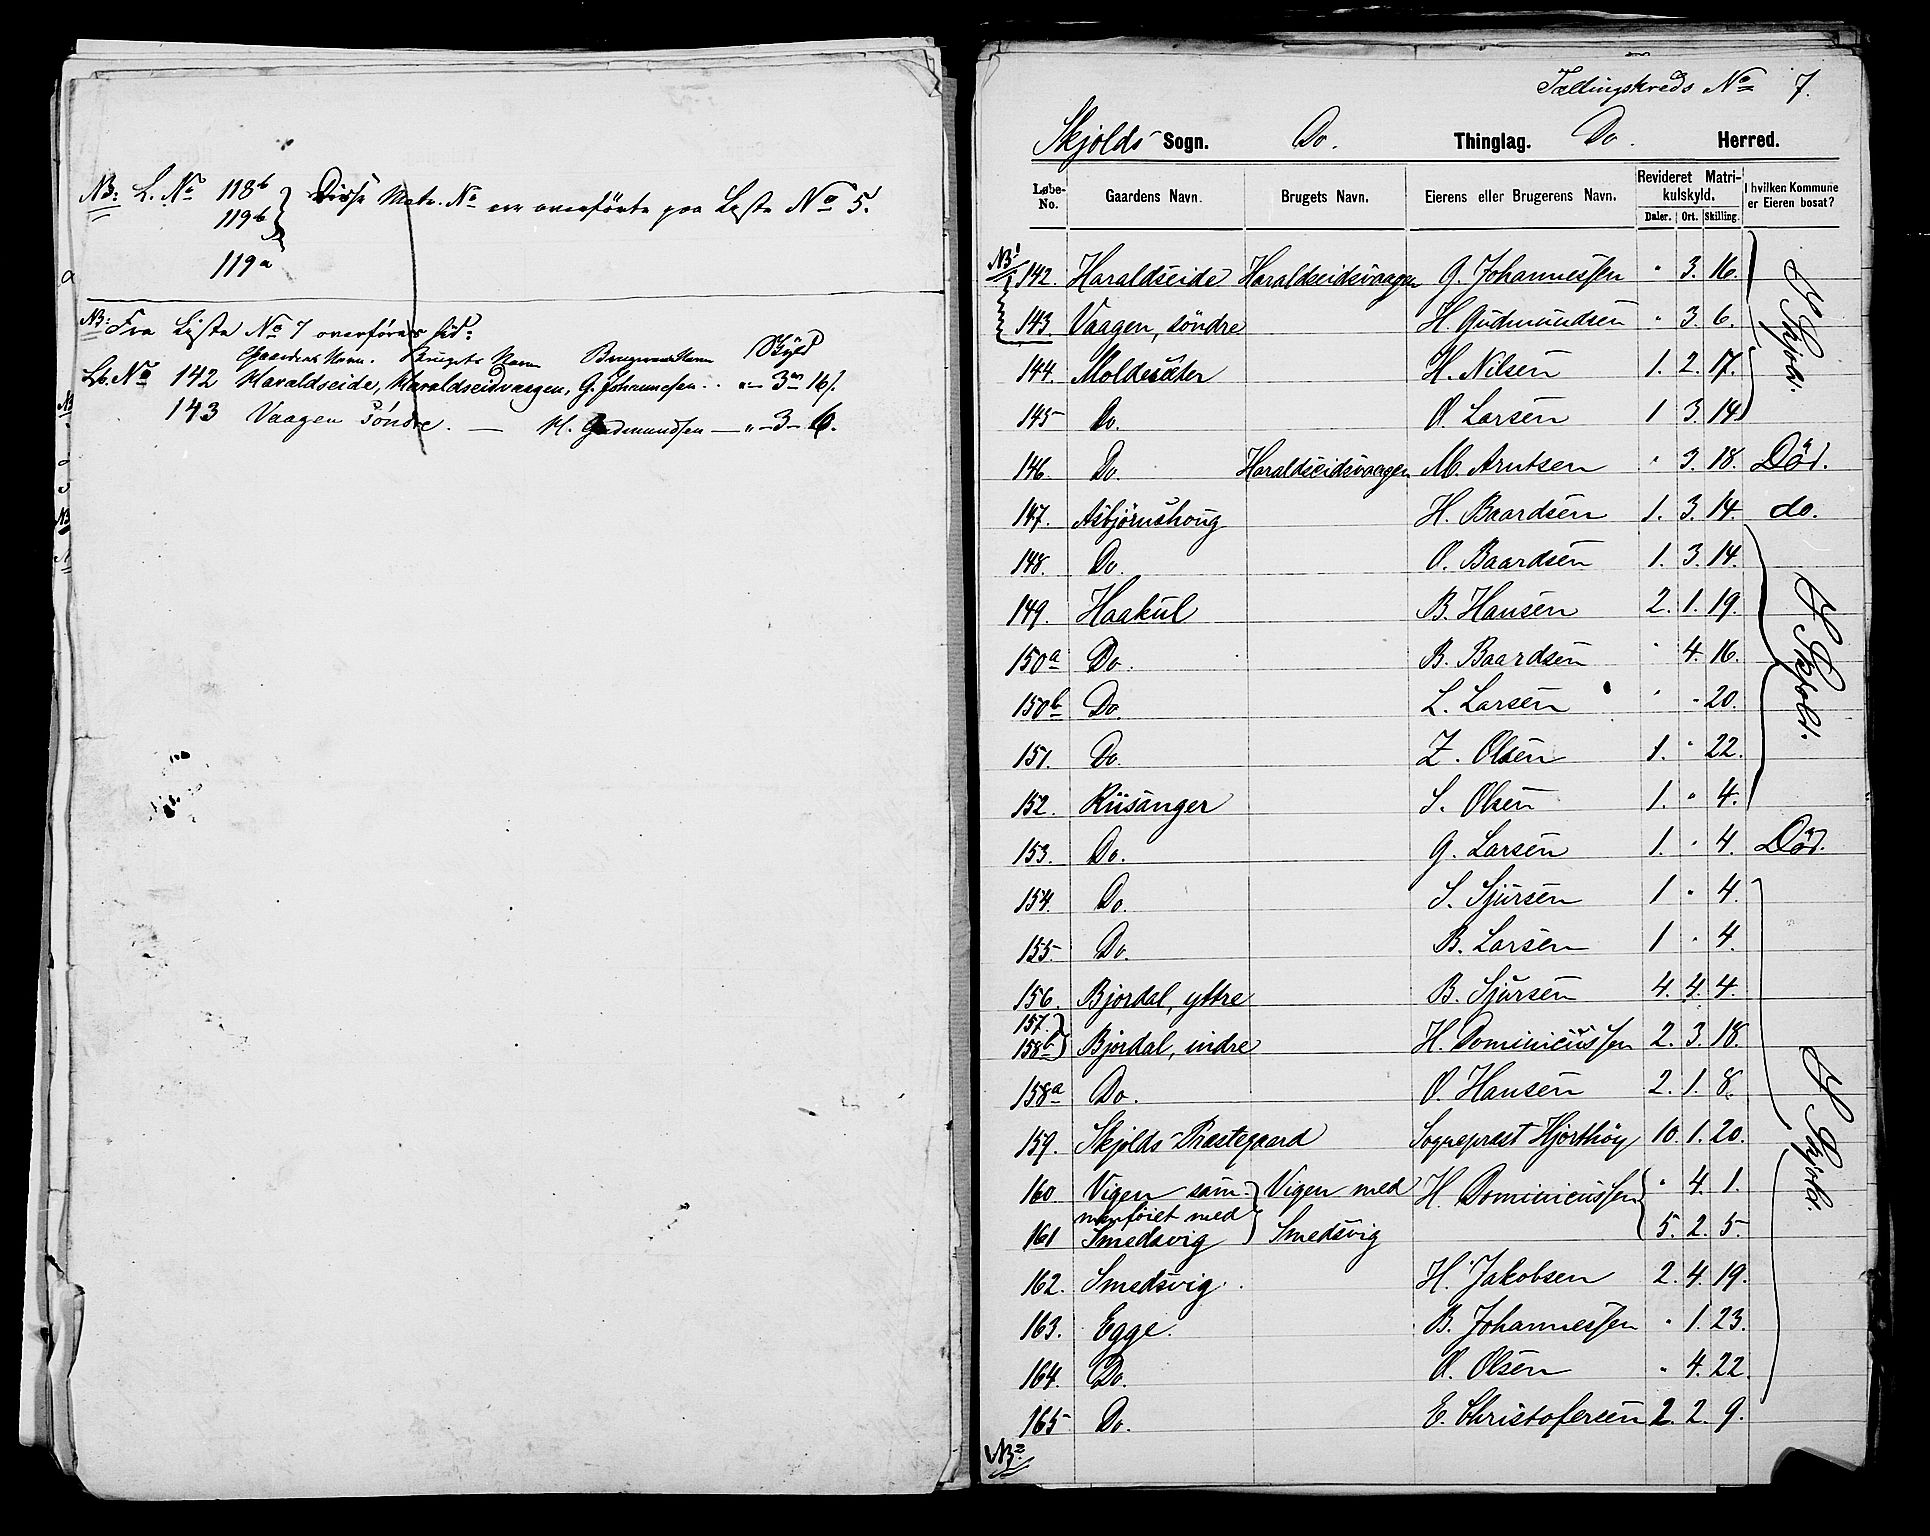 NB: L. No 118b } Disse Matr. No ere overförte paa Liste No 5.
119b
119a
NB: Fra Liste No 7 overföres hid:
Gaardens Navn. Brugets Navn Brugerens Navn Skyld
Lb. No 142 Haraldseide, Haraldseidsvaagen, G. Johannessen .. " - 3 - 16/.
143 Vaagen Söndre. — H. Gudmundsen — " - 3 - 6.
Tællingskreds No 7.
Skjolds Sogn. Do. Thinglag. Do. Herred.
Løbe-No. Gaardens Navn. Brugets Navn. Eierens eller Brugerens Navn. Revideret Matrikulskyld. Daler. Ort. Skilling. I hvilken Kommune er Eieren bosat?
NB! 142. Haraldseide Haraldseidsvaagen G. Johannessen " 3. 16.
143. Vaagen, söndre H. Gudmundsen " 3. 6. I Skjold.
144. Moldesæter H. Nilsen 1. 2. 17.
145 Do. O. Larsen 1 3. 14.
146. Do. Haraldseidsvaagen M. Arntsen " 3. 18. Död.
147. Asbjörnshoug H. Baardsen 1. 3. 14. do.
148. Do. O. Baardsen 1. 3. 14.
149. Haakul B. Hansen 2. 1. 19.
150a Do. B. Baardsen " 4. 16. I Skjold.
150b Do. L. Larsen " " 20.
151. Do. Z. Olsen 1. " 22.
152. Riisanger S. Olsen 1. " 4.
153. Do. G. Larsen 1. " 4. Död.
154. Do. S. Sjursen 1 " 4.
155. Do. B. Larsen 1 " 4.
156. Bjordal, yttre B. Sjursen 4. 4. 4.
157. }
158b } Bjordal, indre H. Dominicussen 2. 3. 18.
158a Do. O. Hansen 2. 1. 8. I Skjold.
159. Skjolds Præstegaard Sognepræst Hjorthöy 10. 1. 20.
160 Vigen sam- } Vigen med H. Dominicussen { " 4. 1.
menföiet med
161 Smedsvig Smedsvig 5. 2. 5.
162. Smedsvig. H. Jakobsen 2. 4. 19.
163. Egge. B. Johannessen " 1. 23.
164. Do. O. Olsen " 4. 22.
165 Do. E. Christofersen 2. 2. 9.
NB=